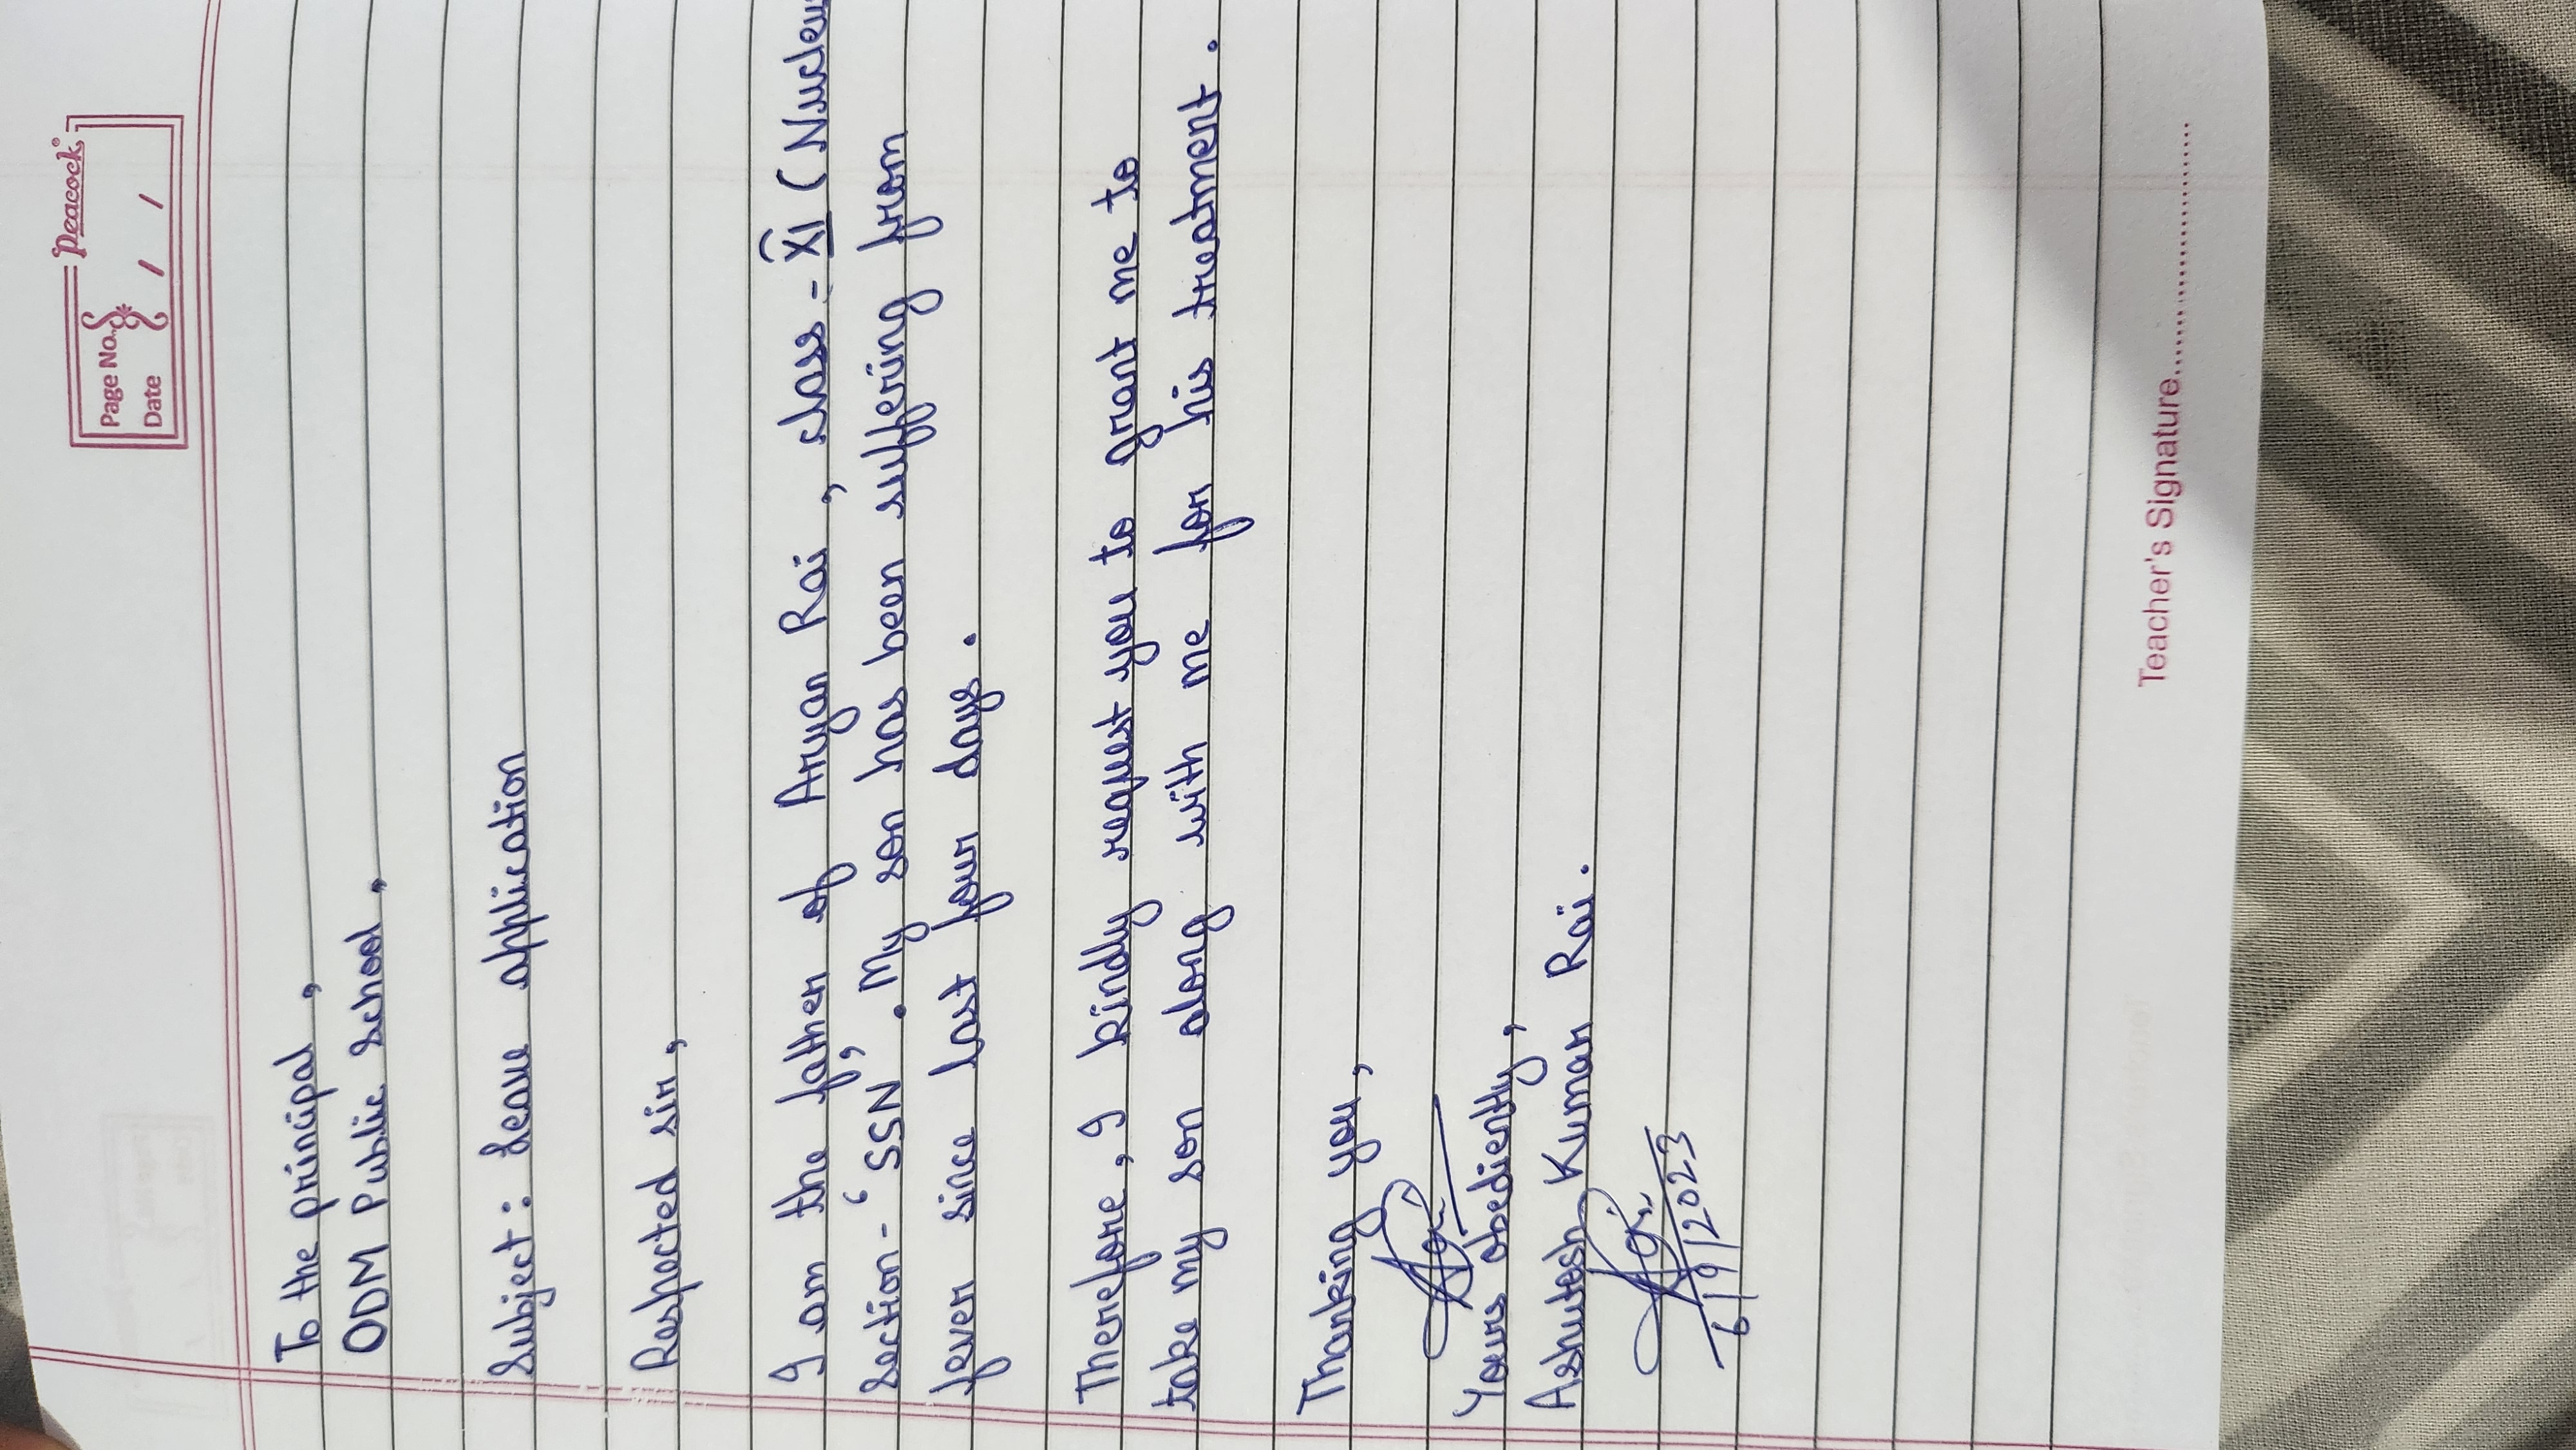 Peacock
Page No.
Date / /
To the principal,
ODM Public School,
Subject: Leave application
Respected sir,
I am the father of Aryan Rai, class - XI (Nucleus
Section - 'SSN'. My son has been suffering from
fever since last four days.
Therefore, I kindly request you to grant me to
take my son along with me for his treatment.
Thanking you,
Yours obediently,
Ashutosh Kumar Rai.
6/9/2023
Teacher's Signature